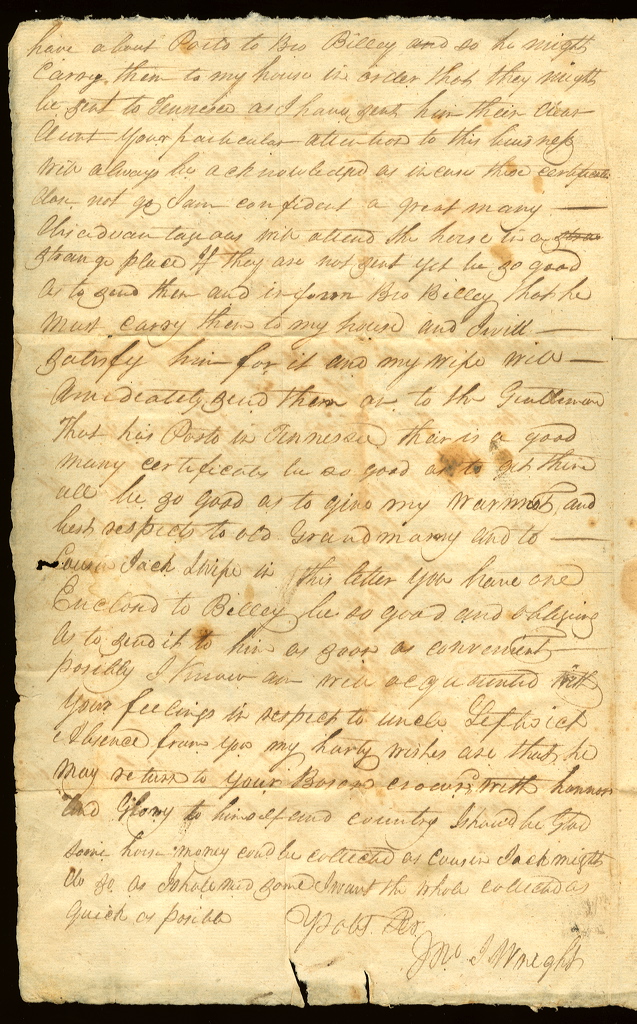 have about Porto to Bro Billey and so he might
Carry them to my house in order that they might
be sent to Tennessee as I have sent him their clear
Your particular attention to this business
will always be acknowledged as in case those certificates
dose not go I am confident a great many —
disadvantageous will attend the horse in a
strange place If they are not sent yet be so good
as to send them and inform Bro Billey that he
must carry them to my house and I will —
satisfy him for it and my wife will —
amidiately send them on to the Gentleman
That has Porto in Tennessee thair is a good
many certificates be so good as to get them
all be so good as to give my warmest and
best respects to old Grandmamy and to —
Cousin Jack & wife in this letter you have one
Enclosd to Billey be so good and obligeing
as to send it to him as soon as convenient
posibly I know am well acquainted with
Your feelings in respect to uncle Leftwich
Absence from you my harty wishes are that he
may return to your Bosom crown'd with honnor
and Glory to himself and country I should be Glad
some horse money could be collected as cousin Jack might
do so as I shall need some I want the whole collected as
quick as posible
Jno J Wright